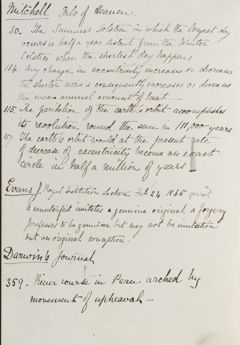 Mitchell. Orbs of Heaven.
80. The Summer Solstice in which the longest day
occurs is half a year distant from the Winter
Solstice when the shortest day happens
114. Any change in excentricity increases or decreases
the shorter axis & consequently increases or decreases
the mean annual amount of heat —
115. The perihelion of the earth's orbit accomplishes
its revolution round the sun in 111,000 years
117 The earth's orbit would at the present rate
of decrease of eccentricity become an exact
circle in half a million of years
Evans J. Royal Institution Lecture Feb 24. 1865
a counterfeit imitates a genuine original, a forgery
professes to be genuine but may not be imitation
but an original conception.
Darwin's Journal
359. River course in Peru arched by
movement of upheaval —